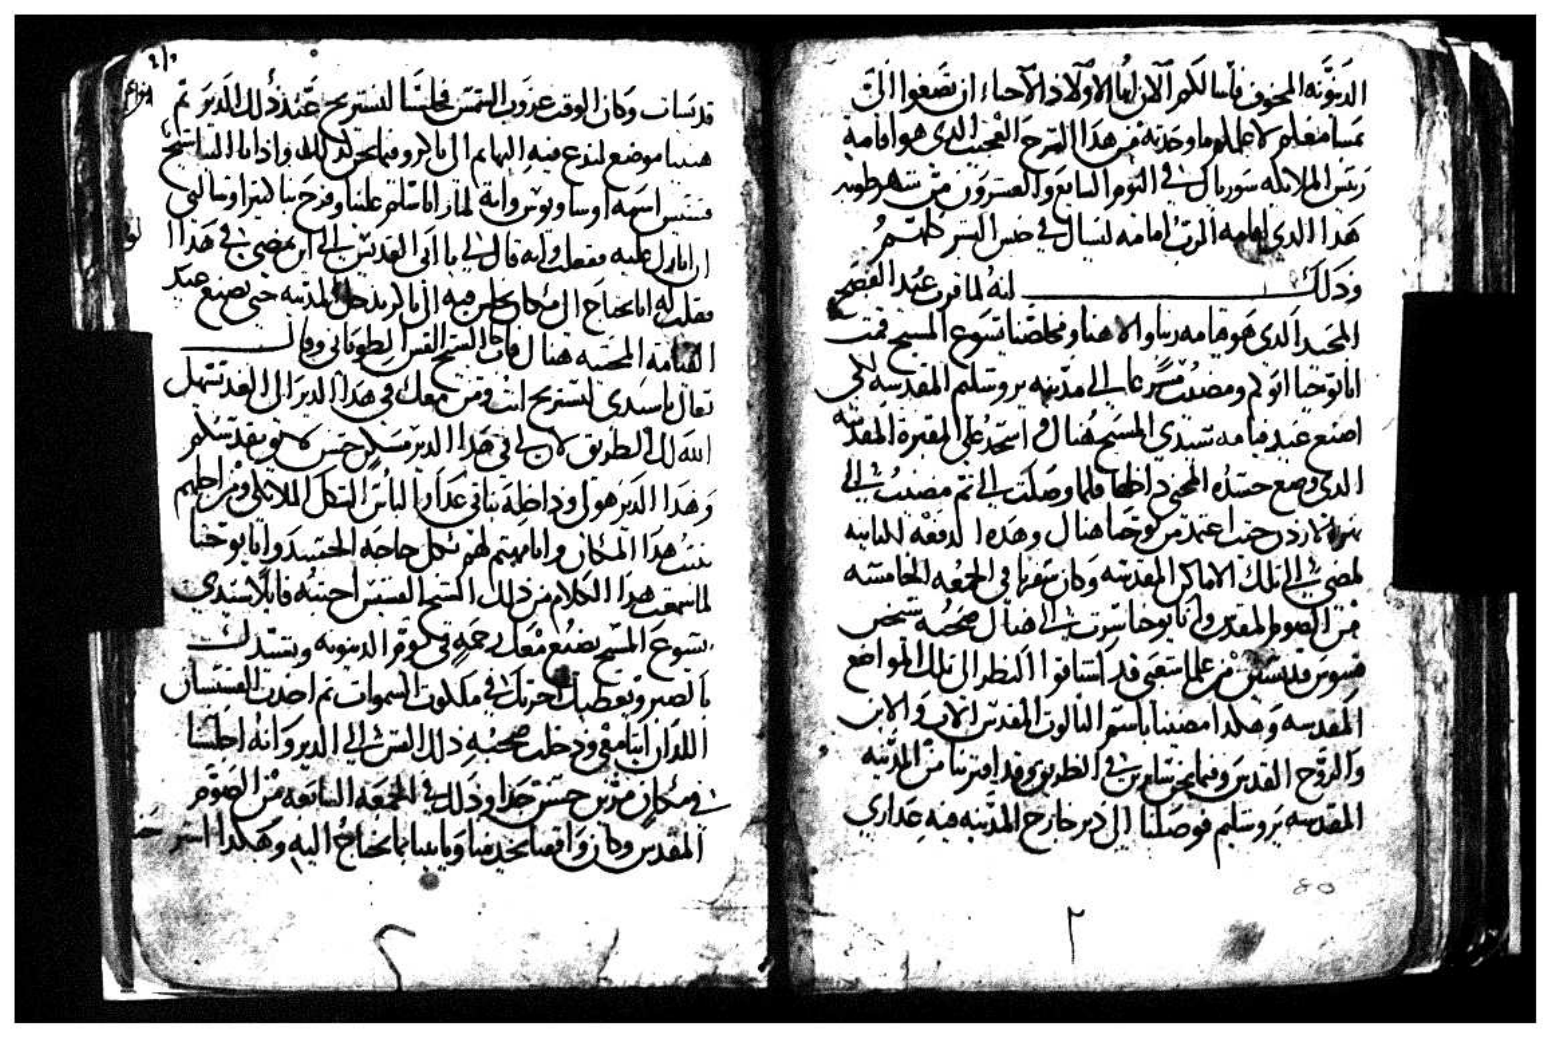 الدينونه المخوف فاسالكم الان ايها الاولاد الاحباء ان تصغوا الىّ
بمسامعكم لاعلمكم ما وجدته من هذا الشرح العجيب الذى هو اقامة
رئيس الملائكه سوريال في اليوم السابع والعشرون من شهر طوبه
هذا الذي اقامه الرب امامه ليسال في جنس البشر كلهم
وذلك انه لما قرب عيد الفصح
المجيد الذى هو قيامه ربنا والاهنا ومخلصنا يسوع المسيح قمت
انا يوحنا ابوكم ومضيت مسرعا الى مدينه يروشليم المقدسه لكى
اصنع عيد قيامه سيدي المسيح هناك واسجد على المقبرة المقدسه
الذى وضع جسده المحيى داخلها فلما وصلت الى ثم مضيت الى
الاردن حيث اعتمد من يوحنا هناك وهذه الدفعه الثانيه
لمضيى الى تلك الاماكن المقدسه وكان سفرنا في الجمعه الخامسه
من الصوم المقدس وانا يوحنا سرت الى هناك صحبه شخص
قسوس قديسين من علماء شعبى قد اشتاقوا النظر الى تلك المواضع
المقدسه وهكدا مضينا باسم الثالوث المقدس الاب والابن
والروح القدس وفيما نحن سايرين في الطريق وقد اقتربنا من المدينه
المقدسه يروشليم فوصلنا الى دير خارج المدينه فيه عداري
80
قديسات وكان الوقت غروب الشمس فجلسنا لنستريح عند ذلك الدير ثم
هيينا موضع لندع فيه البهايم الى باكر وفيما نحن كذلك واذا باالقيا شيخ
قسيس اسمه اوسابيوس وانه لما رانا سلم علينا وفرح بنا كثيرا وسالنى
ان ابارك عليه ففعلت وانه قال لى يا ابى القديس الى اين تمضى في هذا ا
فقلت له انا نحتاج الى مكان نجلس فيه الى باكر ندخل المدينه حتى نصنع عيد
القيامه المحييه هناك فاجاب الشيخ القس الطوبانى وقال
تعال يا سيدى لتستريح انت ومن معك في هذا الدير الى الغد يسهل
الله لك الطريق لان لى في هذا الدير مسكن حسن
وهذا الدير هو لى وداخله بناتى عدارا لباس الشكل الملائكى ومن اجلهم
بنيت هذا المكان وانا مهتم لهم بكل حاجه الجسد وانا يوحنا
لما سمعت هدا الكلام من ذلك الشيخ القسيس اجبته قايلا سيدي
يسوع المسيح يصنع معك رحمه في يوم الدينونه ويسندك
بالصبر ويعطيك اجرتك في ملكوت السموات ثم اخدت القسيسان
اللدان اتيا معى ودخلت صحبه ذلك القس الى الدير وانه اجلسنا
في مكان مزين حسن جدا وذلك في الجمعه السابعه من الصوم
المقدس وكان واقفا يخدمنا وياتينا بما نحتاج اليه وهكدا استر